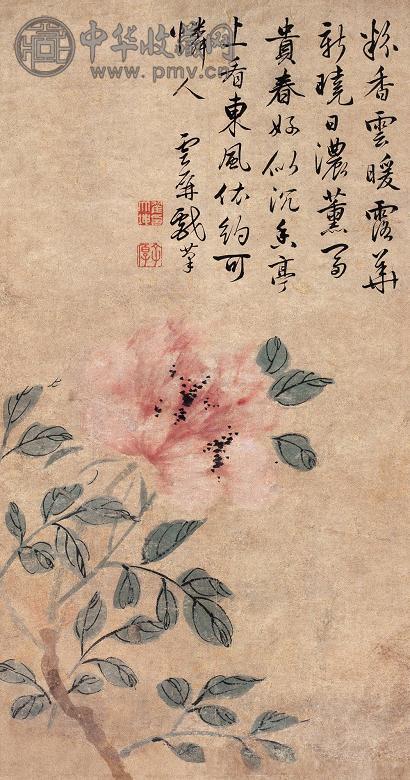 中华收藏网
www.pmv.cn
粉香雲暖露華
新曉日濃薰富
貴春好似沉香亭
上看東風依約可
憐人 雲屏戲筆